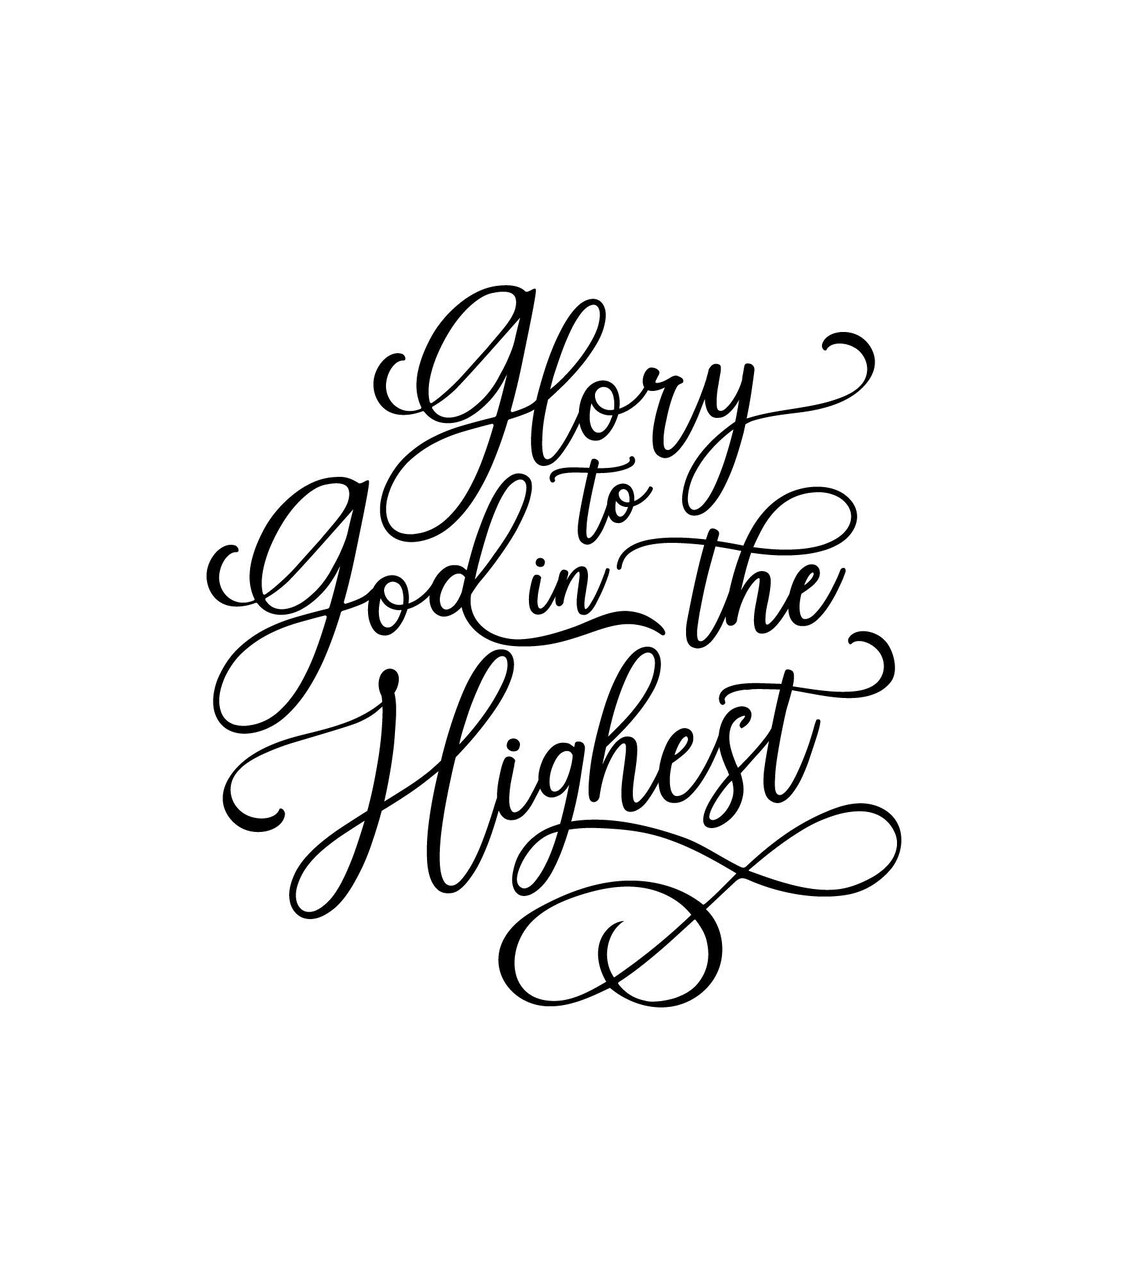 Glory
to
God in the
Highest